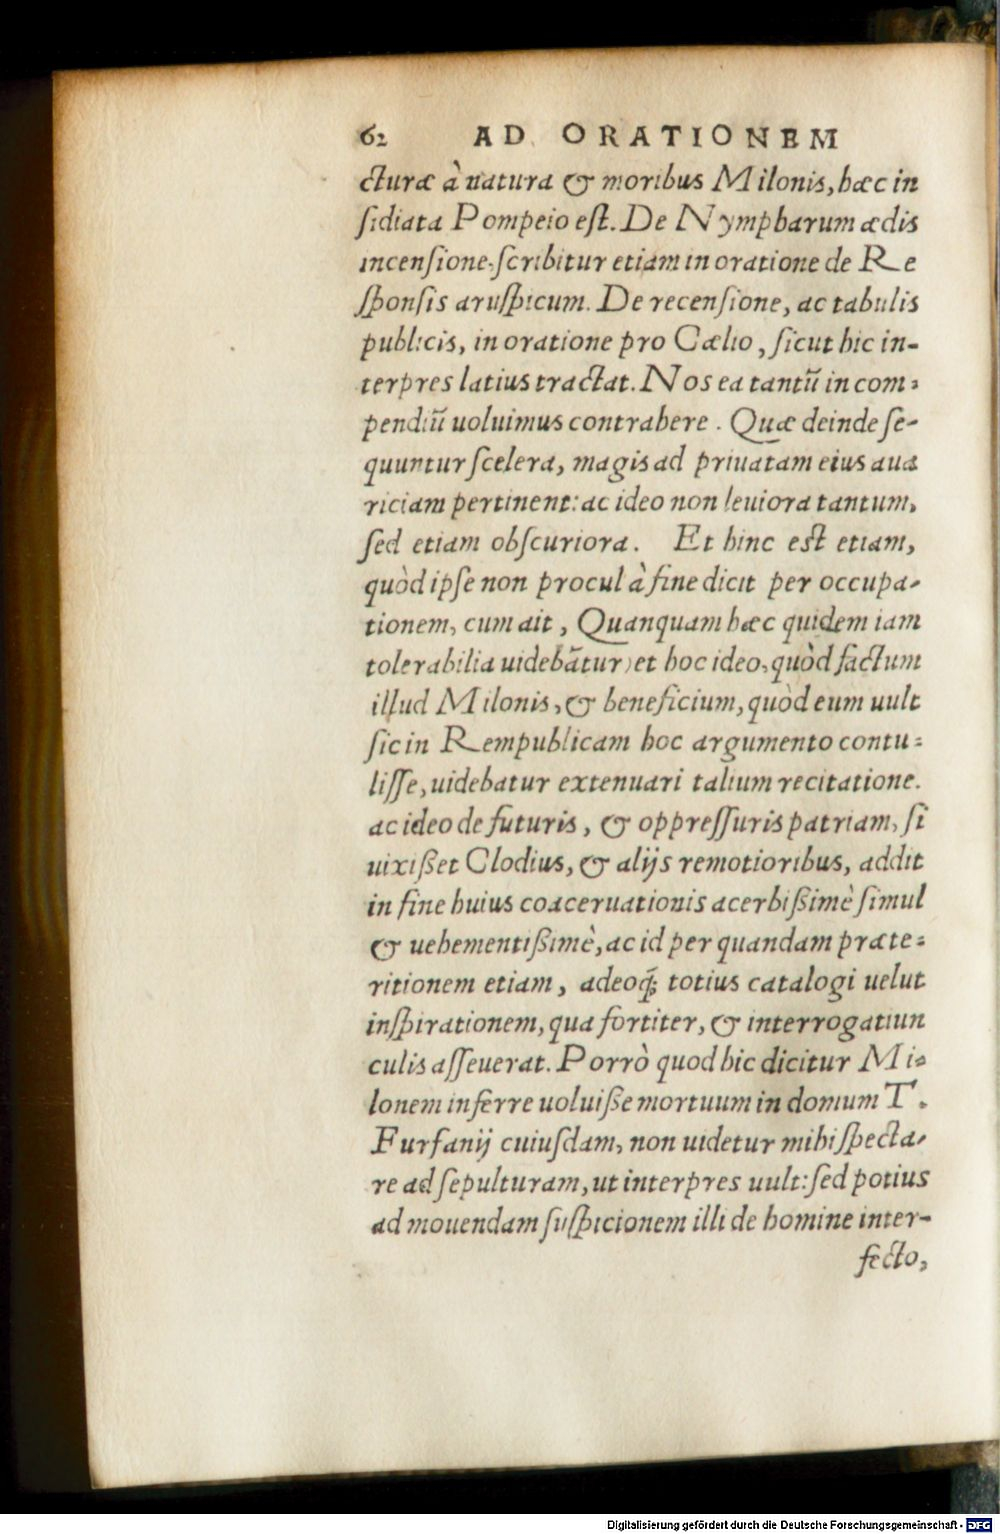 62 AD ORATIONEM
cturæ à natura & moribus Milonis, hæc in
ſidiata Pompeio eſt. De Nympharum ædis
incenſione, ſcribitur etiam in oratione de Re
ſponſis aruſpicum. De recenſione, ac tabulis
publicis, in oratione pro Cælio, ſicut hic in-
terpres latius tractat. Nos ea tantũ in com-
pendiũ uoluimus contrahere. Quæ deinde ſe-
quuntur ſcelera, magis ad priuatam eius aua
riciam pertinent: ac ideo non leuiora tantum,
ſed etiam obſcuriora. Et hinc eſt etiam,
quòd ipſe non procul à fine dicit per occupa-
tionem, cum ait, Quanquam hæc quidem iam
tolerabilia uidebãtur) et hoc ideo, quòd factum
illud Milonis, & beneficium, quòd eum uult
ſic in Rempublicam hoc argumento contu-
liſſe, uidebatur extenuari talium recitatione.
ac ideo de futuris, & oppreſſuris patriam, ſi
uixißet Clodius, & alijs remotioribus, addit
in fine huius coaceruationis acerbißimè ſimul
& uehementißimè, ac id per quandam præte-
ritionem etiam, adeoq́; totius catalogi uelut
inſpirationem, qua fortiter, & interrogatiun
culis aſſeuerat. Porrò quod hic dicitur Mi-
lonem inferre uoluiße mortuum in domum T.
Furfanij cuiuſdam, non uidetur mihi ſpecta-
re ad ſepulturam, ut interpres uult: ſed potius
ad mouendam ſuſpicionem illi de homine inter-
fecto,
Digitalisierung gefördert durch die Deutsche Forschungsgemeinschaft - DFG